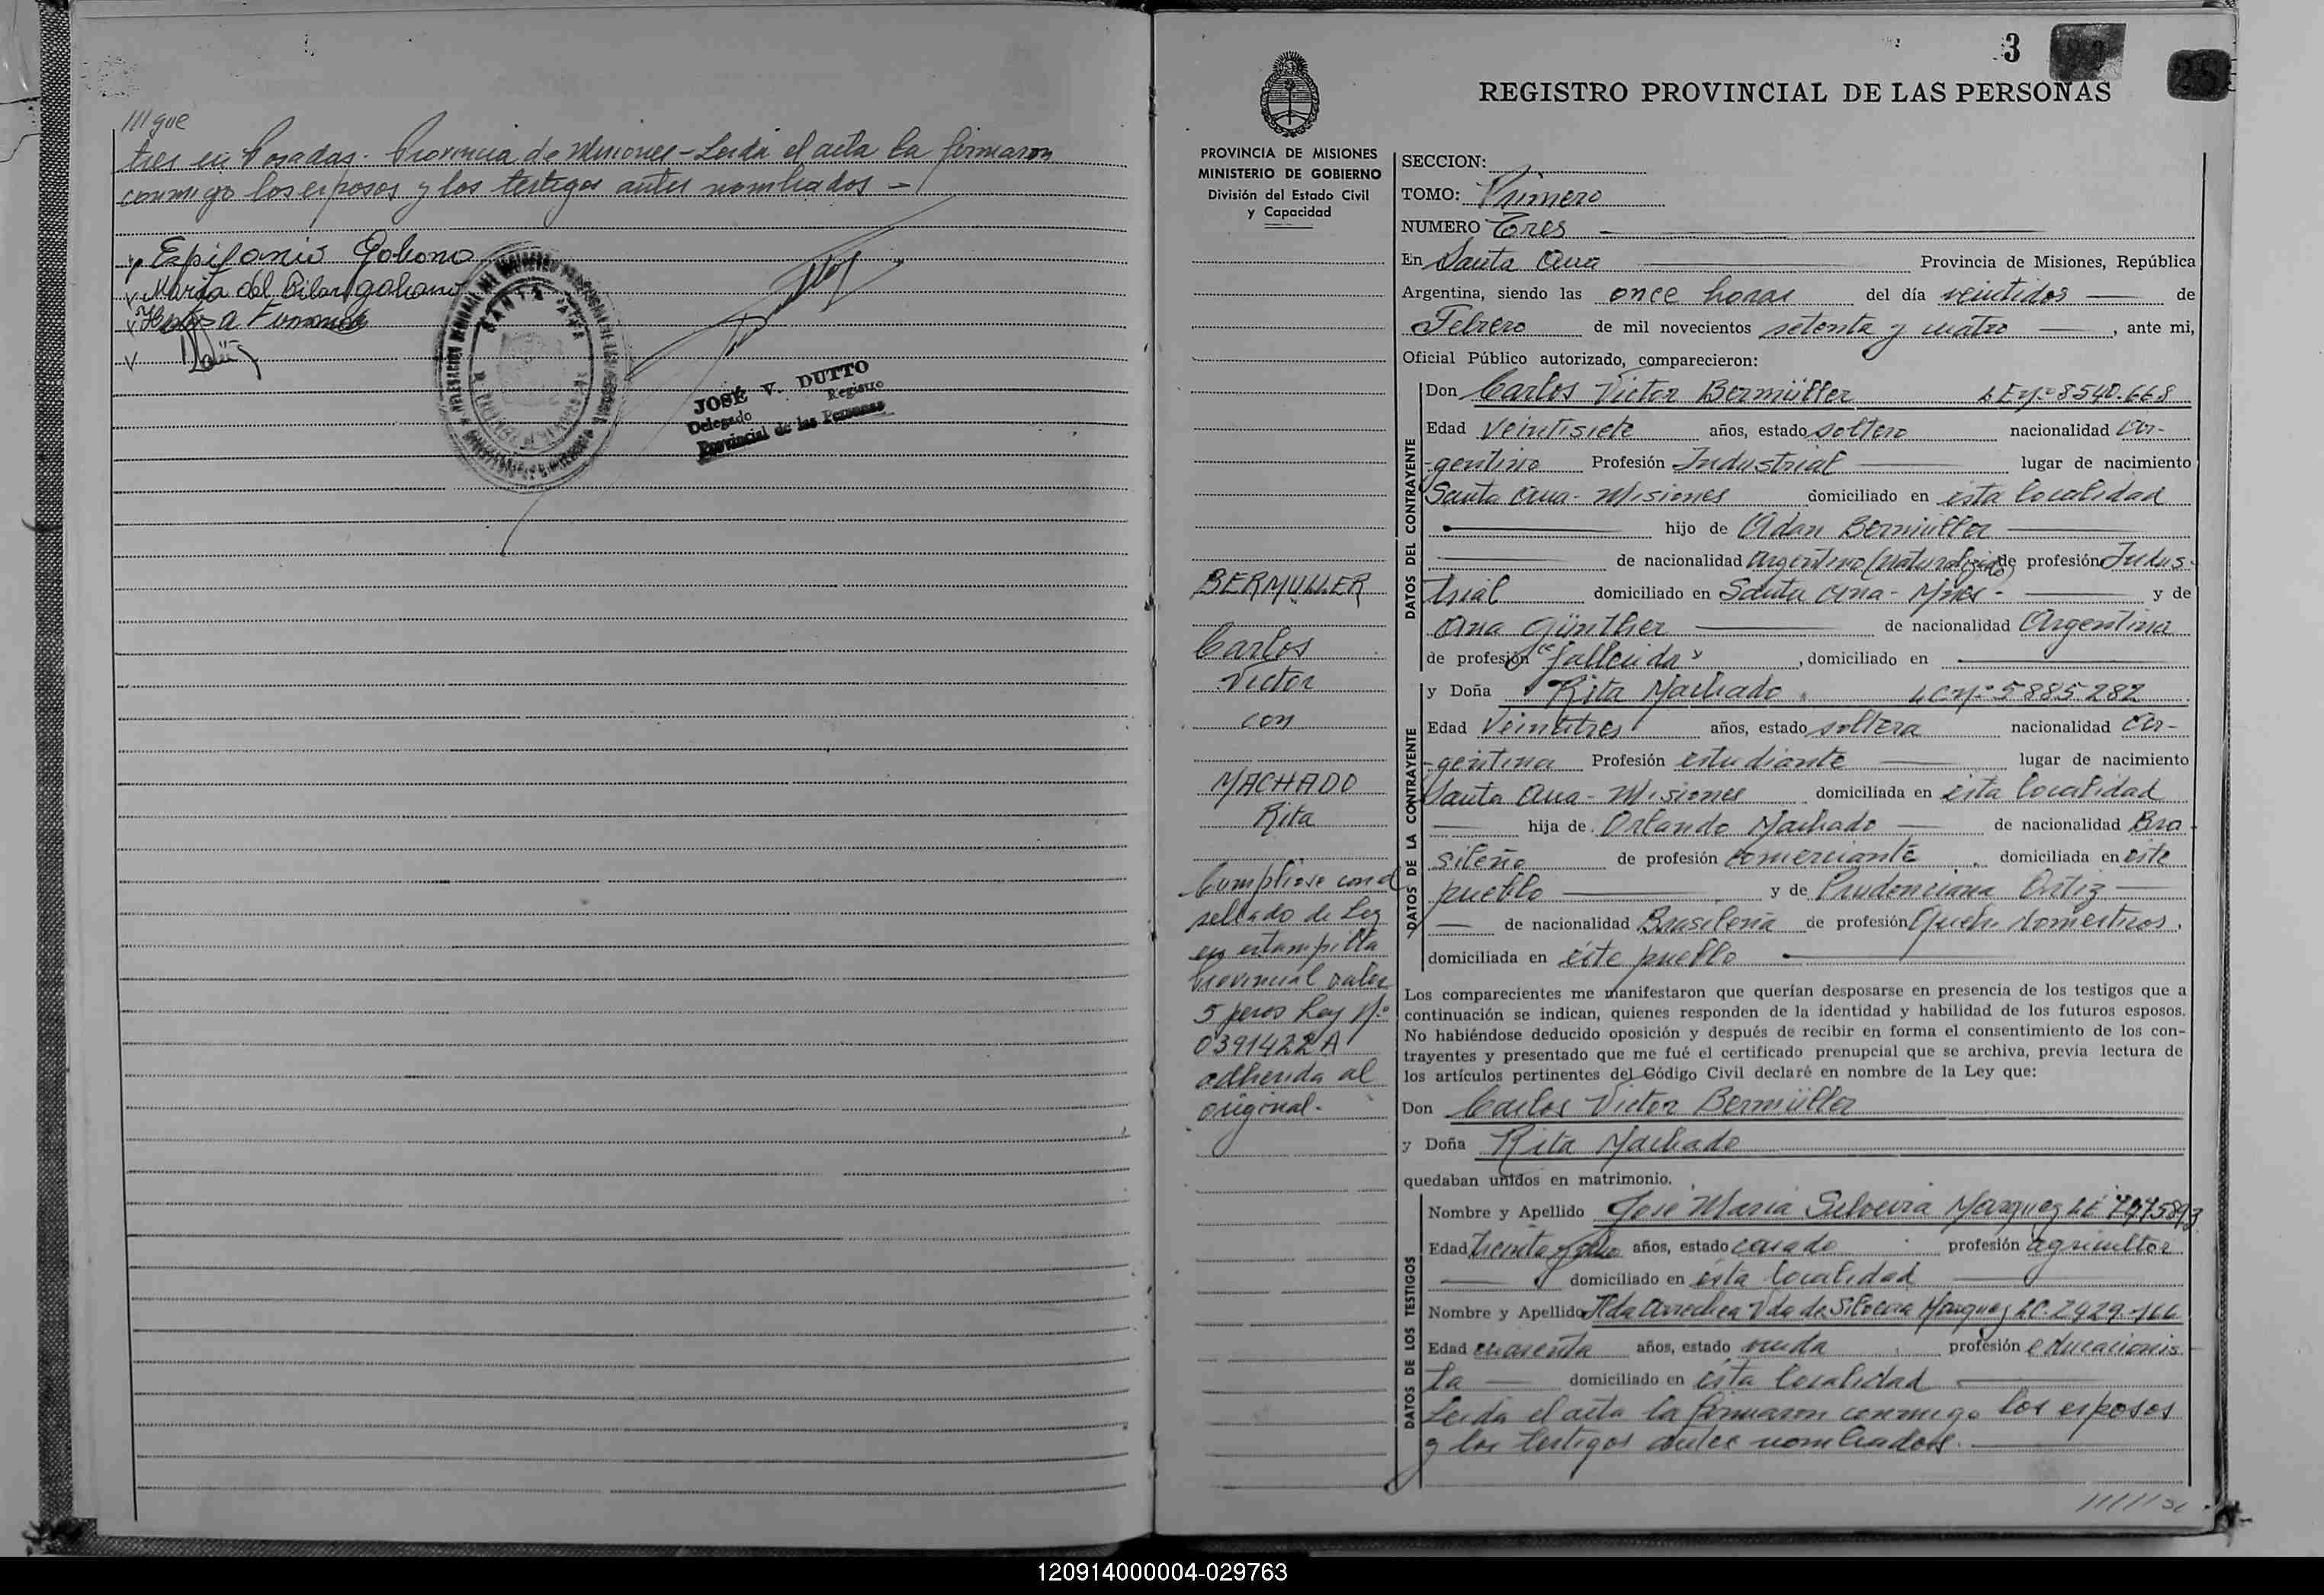 ///gue
tres en Posadas. Provincia de Misiones - Leída el acta la firmaron
conmigo los esposos y los testigos antes nombrados -
Epifanio Galeano
Maria del Pilar galeano
SANTA ANA
JOSÉ V. DUTTO
Delegado Registro
Provincial de las Personas
3
REGISTRO PROVINCIAL DE LAS PERSONAS
PROVINCIA DE MISIONES
MINISTERIO DE GOBIERNO
División del Estado Civil
y Capacidad
BERMULLER
Carlos
Victor
con
MACHADO
Rita
Cumpliose con el
sellado de Ley
en estampilla
Provincial valor
5 pesos Ley N.º
0391422 A
adherida al
original.-
SECCION:
TOMO: Primero
NUMERO Tres
En Santa Ana Provincia de Misiones, República
Argentina, siendo las once horas del día veintidos de
Febrero de mil novecientos setenta y cuatro, ante mi,
Oficial Público autorizado, comparecieron:
DATOS DEL CONTRAYENTE
Don Carlos Victor Bermüller L E Nº 8540.668
Edad veintisiete años, estado soltero nacionalidad Ar-
gentino Profesión Industrial lugar de nacimiento
Santa Ana - Misiones domiciliado en ésta localidad
hijo de Adan Bermuller
de nacionalidad Argentino (naturalizado) de profesión Indus-
trial domiciliado en Santa Ana - Mnes - y de
Ana Günther de nacionalidad Argentina
de profesión "fallecida", domiciliado en
DATOS DE LA CONTRAYENTE
y Doña Rita Machado L C Nº 5885282
Edad Veintitres años, estado soltera nacionalidad Ar-
gentina Profesión estudiante lugar de nacimiento
Santa Ana - Misiones domiciliada en ésta localidad
hija de Orlando Machado de nacionalidad Bra
sileña de profesión comerciante domiciliada en éste
pueblo y de Prudenciana Ortiz
de nacionalidad Brasileña de profesión Queh. domesticos,
domiciliada en éste pueblo
Los comparecientes me manifestaron que querían desposarse en presencia de los testigos que a
continuación se indican, quienes responden de la identidad y habilidad de los futuros esposos.
No habiéndose deducido oposición y después de recibir en forma el consentimiento de los con-
trayentes y presentado que me fué el certificado prenupcial que se archiva, previa lectura de
los artículos pertinentes del Código Civil declaré en nombre de la Ley que:
Don Carlos Victor Bermüller
y Doña Rita Machado
quedaban unidos en matrimonio.
DATOS DE LOS TESTIGOS
Nombre y Apellido José Maria Silveira Marquez LE
Edad treinta y años, estado casado profesión agricultor
domiciliado en ésta localidad
Nombre y Apellido Ilda Arrechea Vda de Silveira Marquez LC. 2429.166
Edad cuarenta años, estado viuda profesión educacionis
ta domiciliado en ésta localidad
Leida el acta la firmaron conmigo los esposos
y los testigos antes nombrados.
120914000004-029763